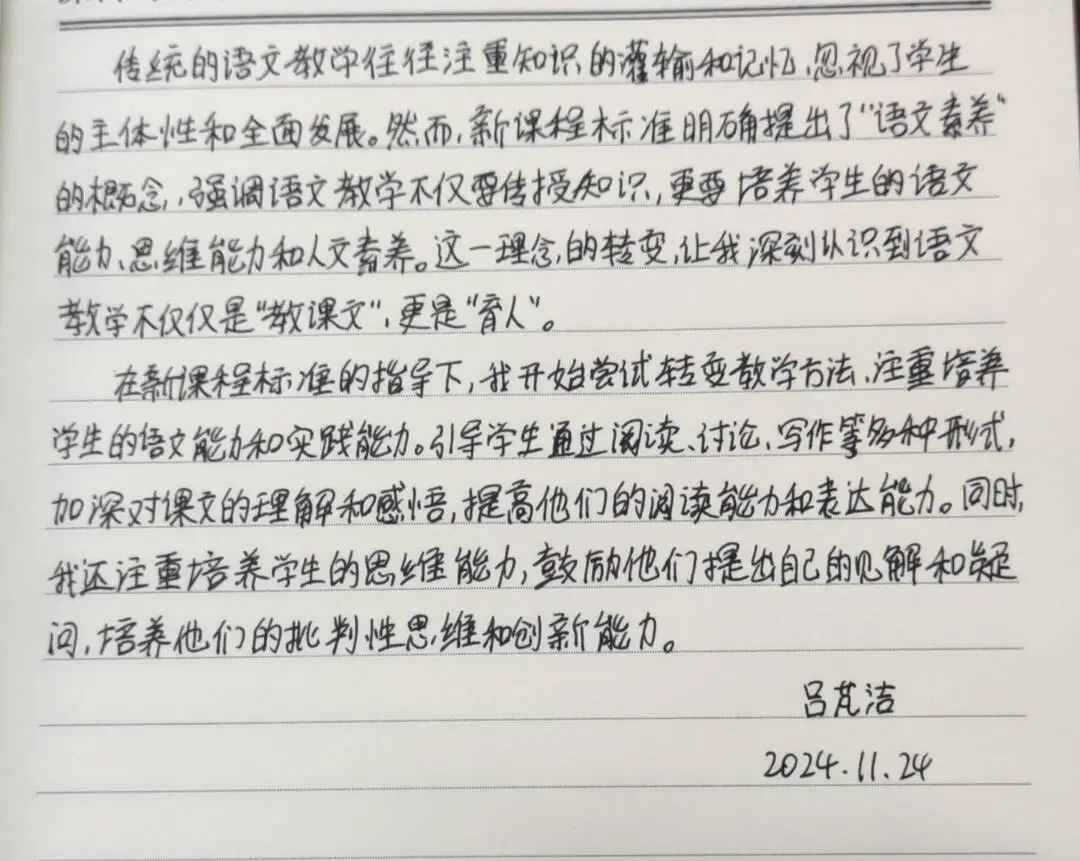 传统的语文教学往往注重知识的灌输和记忆,忽视了学生
的主体性和全面发展。然而,新课程标准明确提出了“语文素养”
的概念,强调语文教学不仅要传授知识,更要培养学生的语文
能力、思维能力和人文素养。这一理念的转变,让我深刻认识到语文
教学不仅仅是“教课文”,更是“育人”。
在新课程标准的指导下,我开始尝试转变教学方法,注重培养
学生的语文能力和实践能力。引导学生通过阅读、讨论、写作等多种形式,
加深对课文的理解和感悟,提高他们的阅读能力和表达能力。同时,
我还注重培养学生的思维能力,鼓励他们提出自己的见解和疑
问,培养他们的批判性思维和创新能力。
吕芃洁
2024.11.24